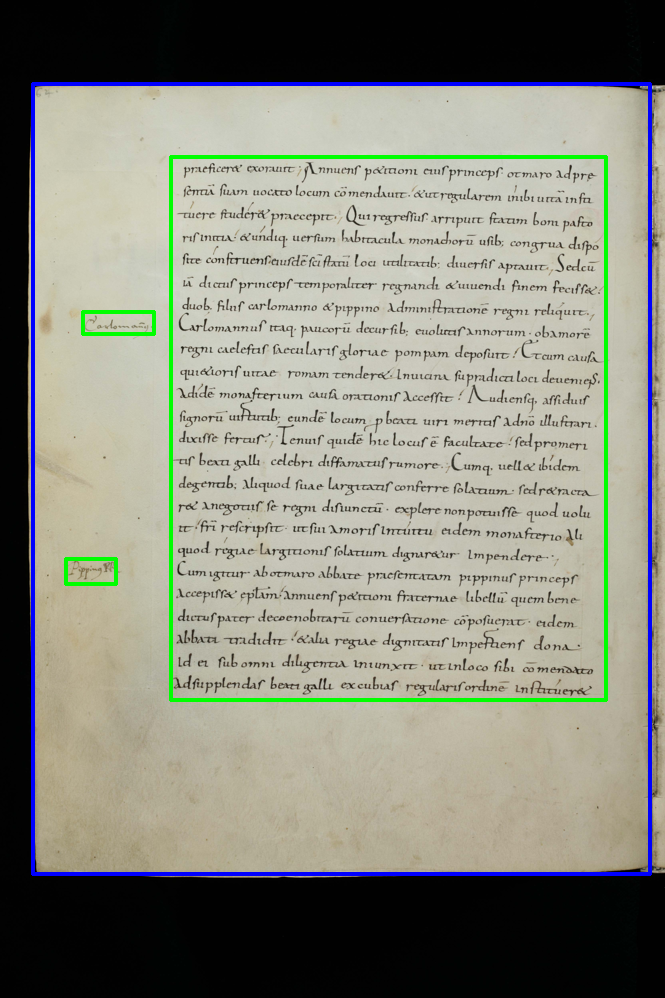 praeficere& exorauit; Annuens p&itioni eius princeps otmaro adpre
sentiā suam uocato locum cōmendauit · &ut regularem inibi uitā insti
tuere studer& praecepit. Qui regressus arripuit statim boni pasto
ris initia · &undiq uersum habitacula monachorū usib; congrua dispo
site construens eiusdē sc̄i statū loci utilitatib; diuersis aptauit. Sed cū
iā dictus princeps temporaliter regnandi &uiuendi finem fecisse&
duob; filiis carlomanno &pippino administrationē regni reliquit.
Carlomannus itaq paucorū decursib; euolutis annorum · obamorē
regni caelestis saecularis gloriae pompam deposuit · Etcum causa
qui&ioris uitae romam tender& · Inuicina supradicti loci deueniens.
Adidē monasterium causa orationis accessit · Audiensq assiduis
signorū uirtutib; eundē locum p beati uiri meritis adnō illustrari.
dixisse fertur; Tenuis quidē hic locus ē facultate · sed promeri
tis beati galli celebri diffamatus rumore. Cumq uell& ibidem
degentib; aliquod suae largitatis conferre solatium · sed r&racta
r& anegotiis se regni disiunctū · explere non potuisse quod uolu
it · fr̄i rescripsit · ut sui amoris intuitu eidem monasterio ali
quod regiae largitionis solatium dignar&ur Impendere.
Cum igitur ab otmaro abbate praesentatam pippinus princeps
accepiss& epl̄am · Annuens p&itioni fraternae libellū quem bene
dictus pater decoenobitarū conuersatione cōposuerat · eidem
abbati tradidit · &alia regiae dignitatis Impertiens dona ·
Id ei sub omni diligentia iniunxit · ut inloco sibi cōmendato
Adsupplendas beati galli excubias regularis ordinē instituere&
Carlomañ